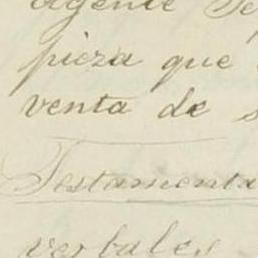 agente Se
pieza que
venta de s
Testamenta
verbales